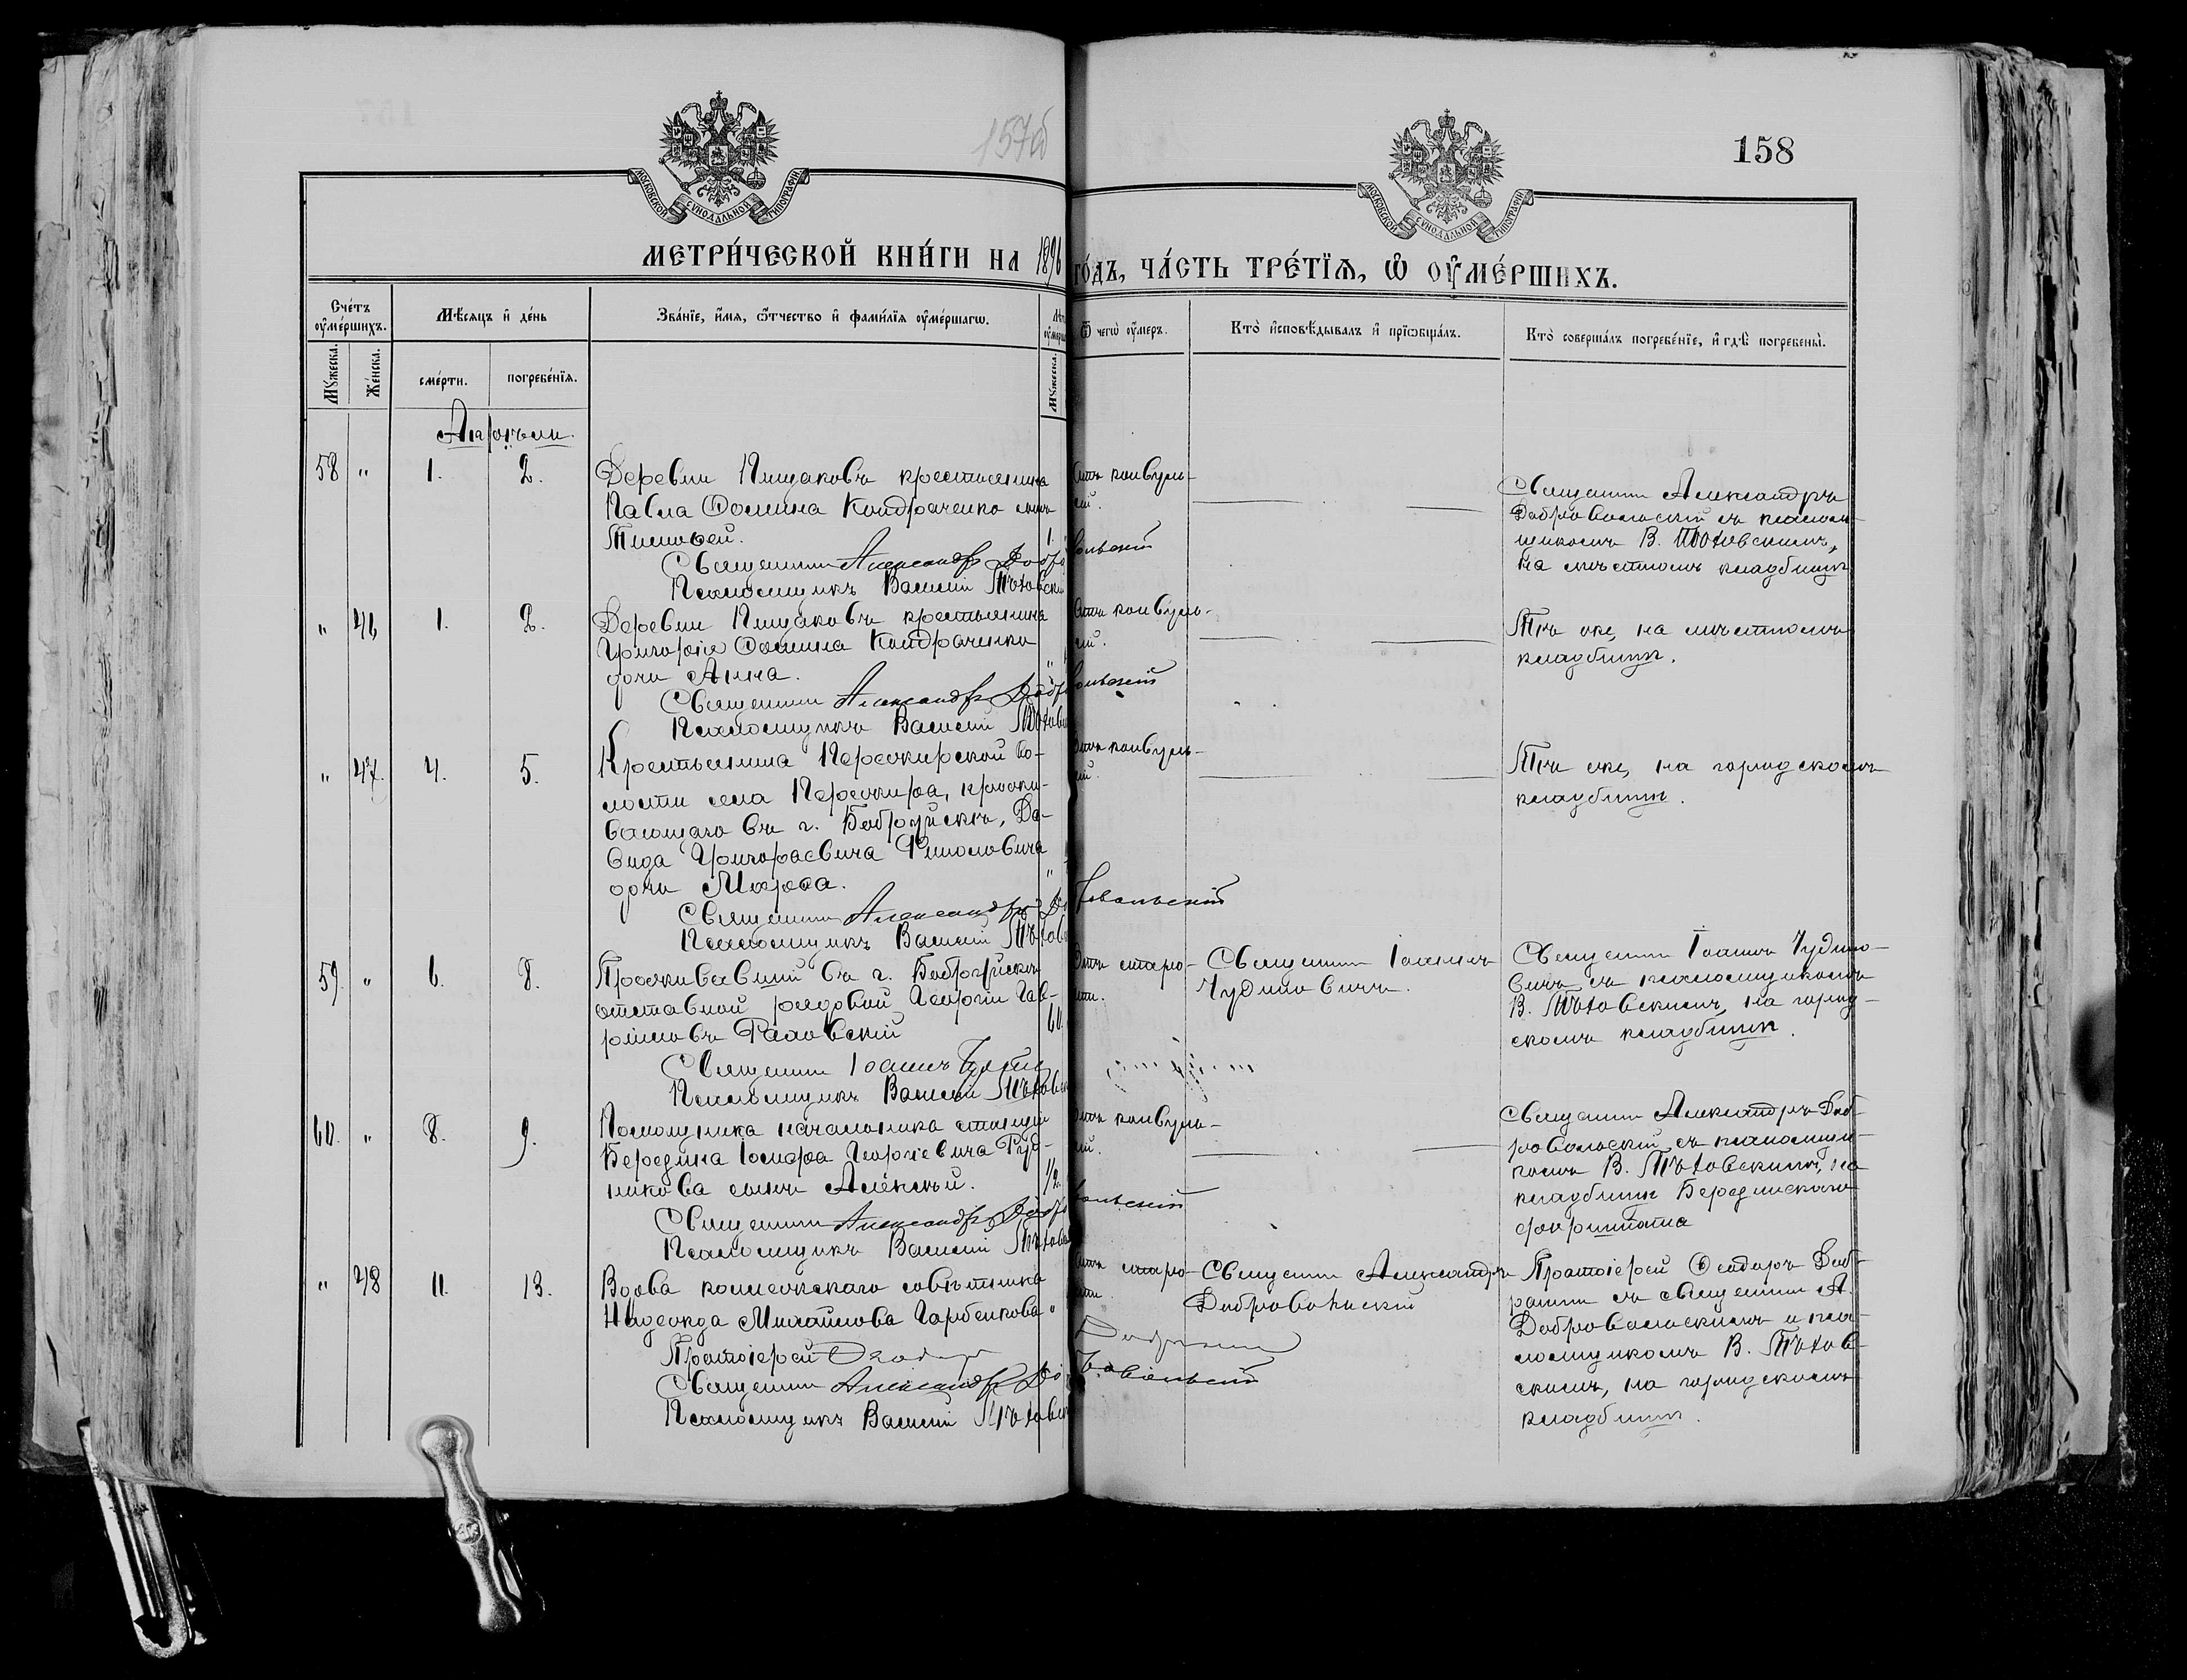 157об
158
МОСКОВСКОЙ СУНОДАЛЬНОЙ ТИПОГРАФІИ
МОСКОВСКОЙ СУНОДАЛЬНОЙ ТИПОГРАФІИ
МЕТРИ́ЧЕСКОЙ КНИ́ГИ НА 1896
ГО́ДЪ, ЧА́СТЬ ТРЕ́ТІѦ, Ѡ҆ ОУ҆МЕ́РШИХЪ.
Счетъ оу҆ме́ршихъ.
Мꙋ́жеска.
Же́нска.
Мѣ́сяцъ и҆ де́нь
сме́рти.
погребе́нїя.
Зва́нїе, и҆́мя, ѻ҆́тчество и҆ фами́лїя оу҆ме́ршагѡ.
Мꙋ́жеска.
Ѿ чегѡ̀ оу҆́меръ.
Кто̀ и҆сповѣ́дывалъ и҆ прїѡбща́лъ.
Кто̀ соверша́лъ погребе́нїе, и҆ гдѣ̀ погребены̀.
Апрѣль.
58 " 1. 2.
Деревни Пищаковъ крестьянина
Павла Ѳомина Кондраченко сынъ
Тимоѳей. 1.
Священникъ Александръ Добровольскій
Псаломщикъ Василій Тѣховскі
Отъ конвуль-
сій.
Священникъ Александръ
Добровольскій съ псалом-
щикомъ В. Тѣховскимъ,
на мѣстномъ кладбищѣ
" 46 1. 2.
Деревни Пищаковъ крестьянина
Григорія Ѳомина Кондраченко
дочь Анна. "
Священникъ Александръ Добровольскій
Псаломщикъ Василій Тѣхов
Отъ конвуль-
сій.
Тѣ же, на мѣстномъ
кладбищѣ.
" 47. 4. 5.
Крестьянина Пережирской во-
лости села Пережира, прожи-
вающаго въ г. Бобруйскѣ, Да-
вида Григорьевича Филоновича
дочь Марѳа. "
Священникъ Александръ Добровольскій
Псаломщикъ Василій Тѣхов
Отъ конвуль-
сій.
Тѣ же, на городскомъ
кладбищѣ.
59. " 6. 8.
Проживавшій въ г. Бобруйскѣ
отставной рядовой Георгій Гав-
риловъ 60.
Священникъ Іоаннъ
Псаломщикъ Василій Тѣховск
Отъ старо-
сти.
Священникъ Іоаннъ
Чудиловичъ.
Священникъ Іоаннъ Чудило-
вичъ съ псаломщикомъ
В. Тѣховскимъ, на город-
скомъ кладбищѣ.
60. " 8. 9.
Помощника начальника станціи
Березина Іосифа Георгіевича Руд-
никова сынъ Алексѣй. 1/2.
Священникъ Александръ Добровольскій
Псаломщикъ Василій Тѣхов
Отъ конвуль-
сій.
Священникъ Александръ Доб-
ровольскій съ псаломщи-
комъ В. Тѣховскимъ, на
кладбищѣ Березинскаго
форштата
" 48 11. 13.
Вдова коллежскаго совѣтника
Надежда Михайлова Горбенкова "
Протоіерей Ѳеодоръ
Священникъ Александръ Добровольскій
Псаломщикъ Василій Тѣховск
Отъ старо-
сти.
Священникъ Александръ
Добровольскій
Протоіерей Ѳеодоръ
съ священникомъ А.
Добровольскимъ и пса-
ломщикомъ В. Тѣхов-
скимъ, на городскомъ
кладбищѣ.